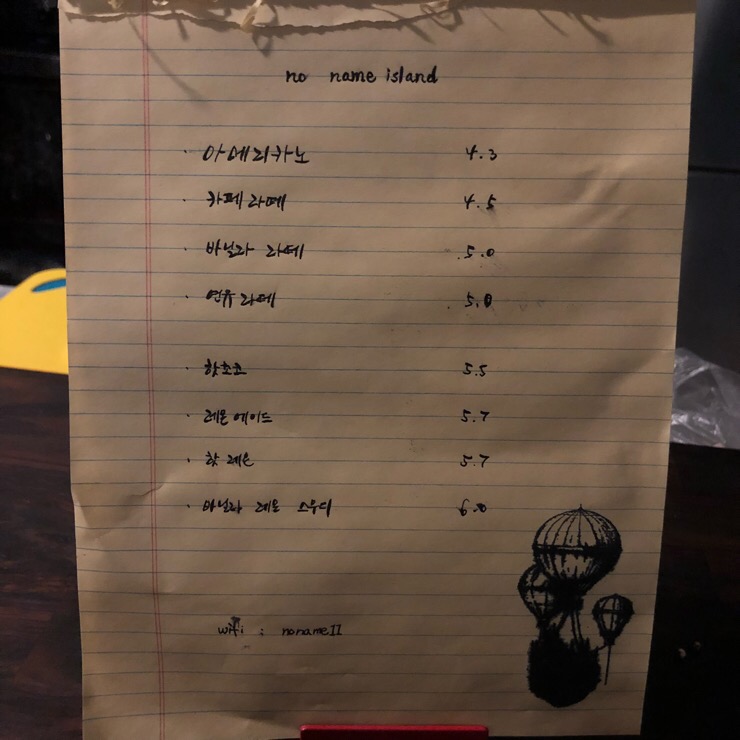 no name island
· 아메리카노 4.3
· 카페라떼 4.5
· 바닐라 라떼 5.0
· 연유라떼 5.0
· 핫초코 5.5
· 레몬에이드 5.7
· 핫레몬 5.7
· 바닐라 레몬 스무디 6.0
wifi : noname11